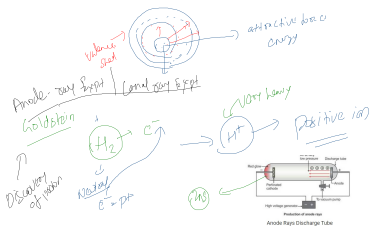 valence shell
attractive force energy
Anode-ray Expt / Canal ray Expt
Goldstein
H₂ → e⁻
Neutral
e⁻ = p⁺
Discovery of proton
very heavy
H⁺
Positive ion
Low pressure
Discharge tube
Perforated cathode
Anode
To vacuum pump
High voltage generator
Production of anode rays
Anode Rays Discharge Tube